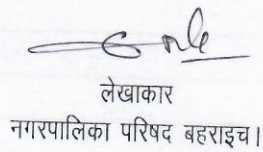 लेखाकार
नगरपालिका परिषद बहराइच।